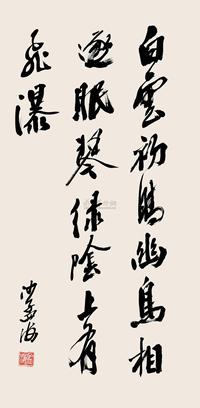 白雲初晴幽鳥相
逐眠琴綠陰上有
飛瀑
沙孟海